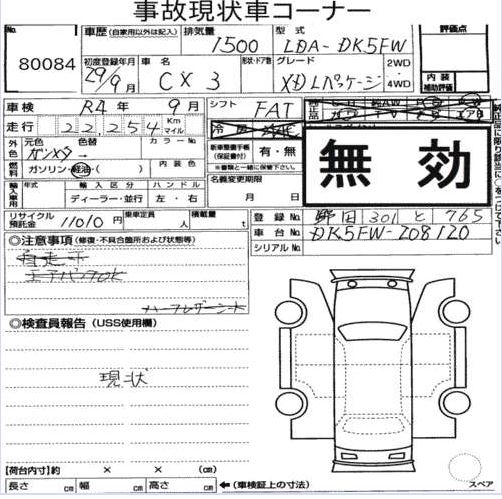 事故現状車コーナー
No. 80084
車歴 (自家用以外は記入)
排気量 1500
型式 LDA-DK5FW
評価点
初度登録年月 29/9月
車名 CX3
形状・ドア数
グレード XDLパッケージ
2WD
4WD
内装
補助評価
車検 R4年 9月
シフト FAT
走行 22,254 Km マイル
冷房
無効
外色 元色 ガンメタ 色替 → カラーNo.
燃料 ガソリン・軽油・( ) 内装色
新車整備手帳 (保証書付) 有・無
※書類と一緒に保管下さい。
輸入車用 年式 輸入区分 ハンドル
ディーラー・並行 左・右
名義変更期限
月 日
リサイクル預託金 11010円
乗車定員 人
積載量 t
登録No. 野田301と765
車台No. DK5FW-208120
シリアルNo.
◎注意事項 (修復・不具合箇所および状態等)
自走不
エアバックOK
ハーフレザーシート
◎検査員報告 (USS使用欄)
現状
【荷台内寸】約 × × (cm)
長さ cm 幅 cm 高さ cm ←(車検証上の寸法)
スペア